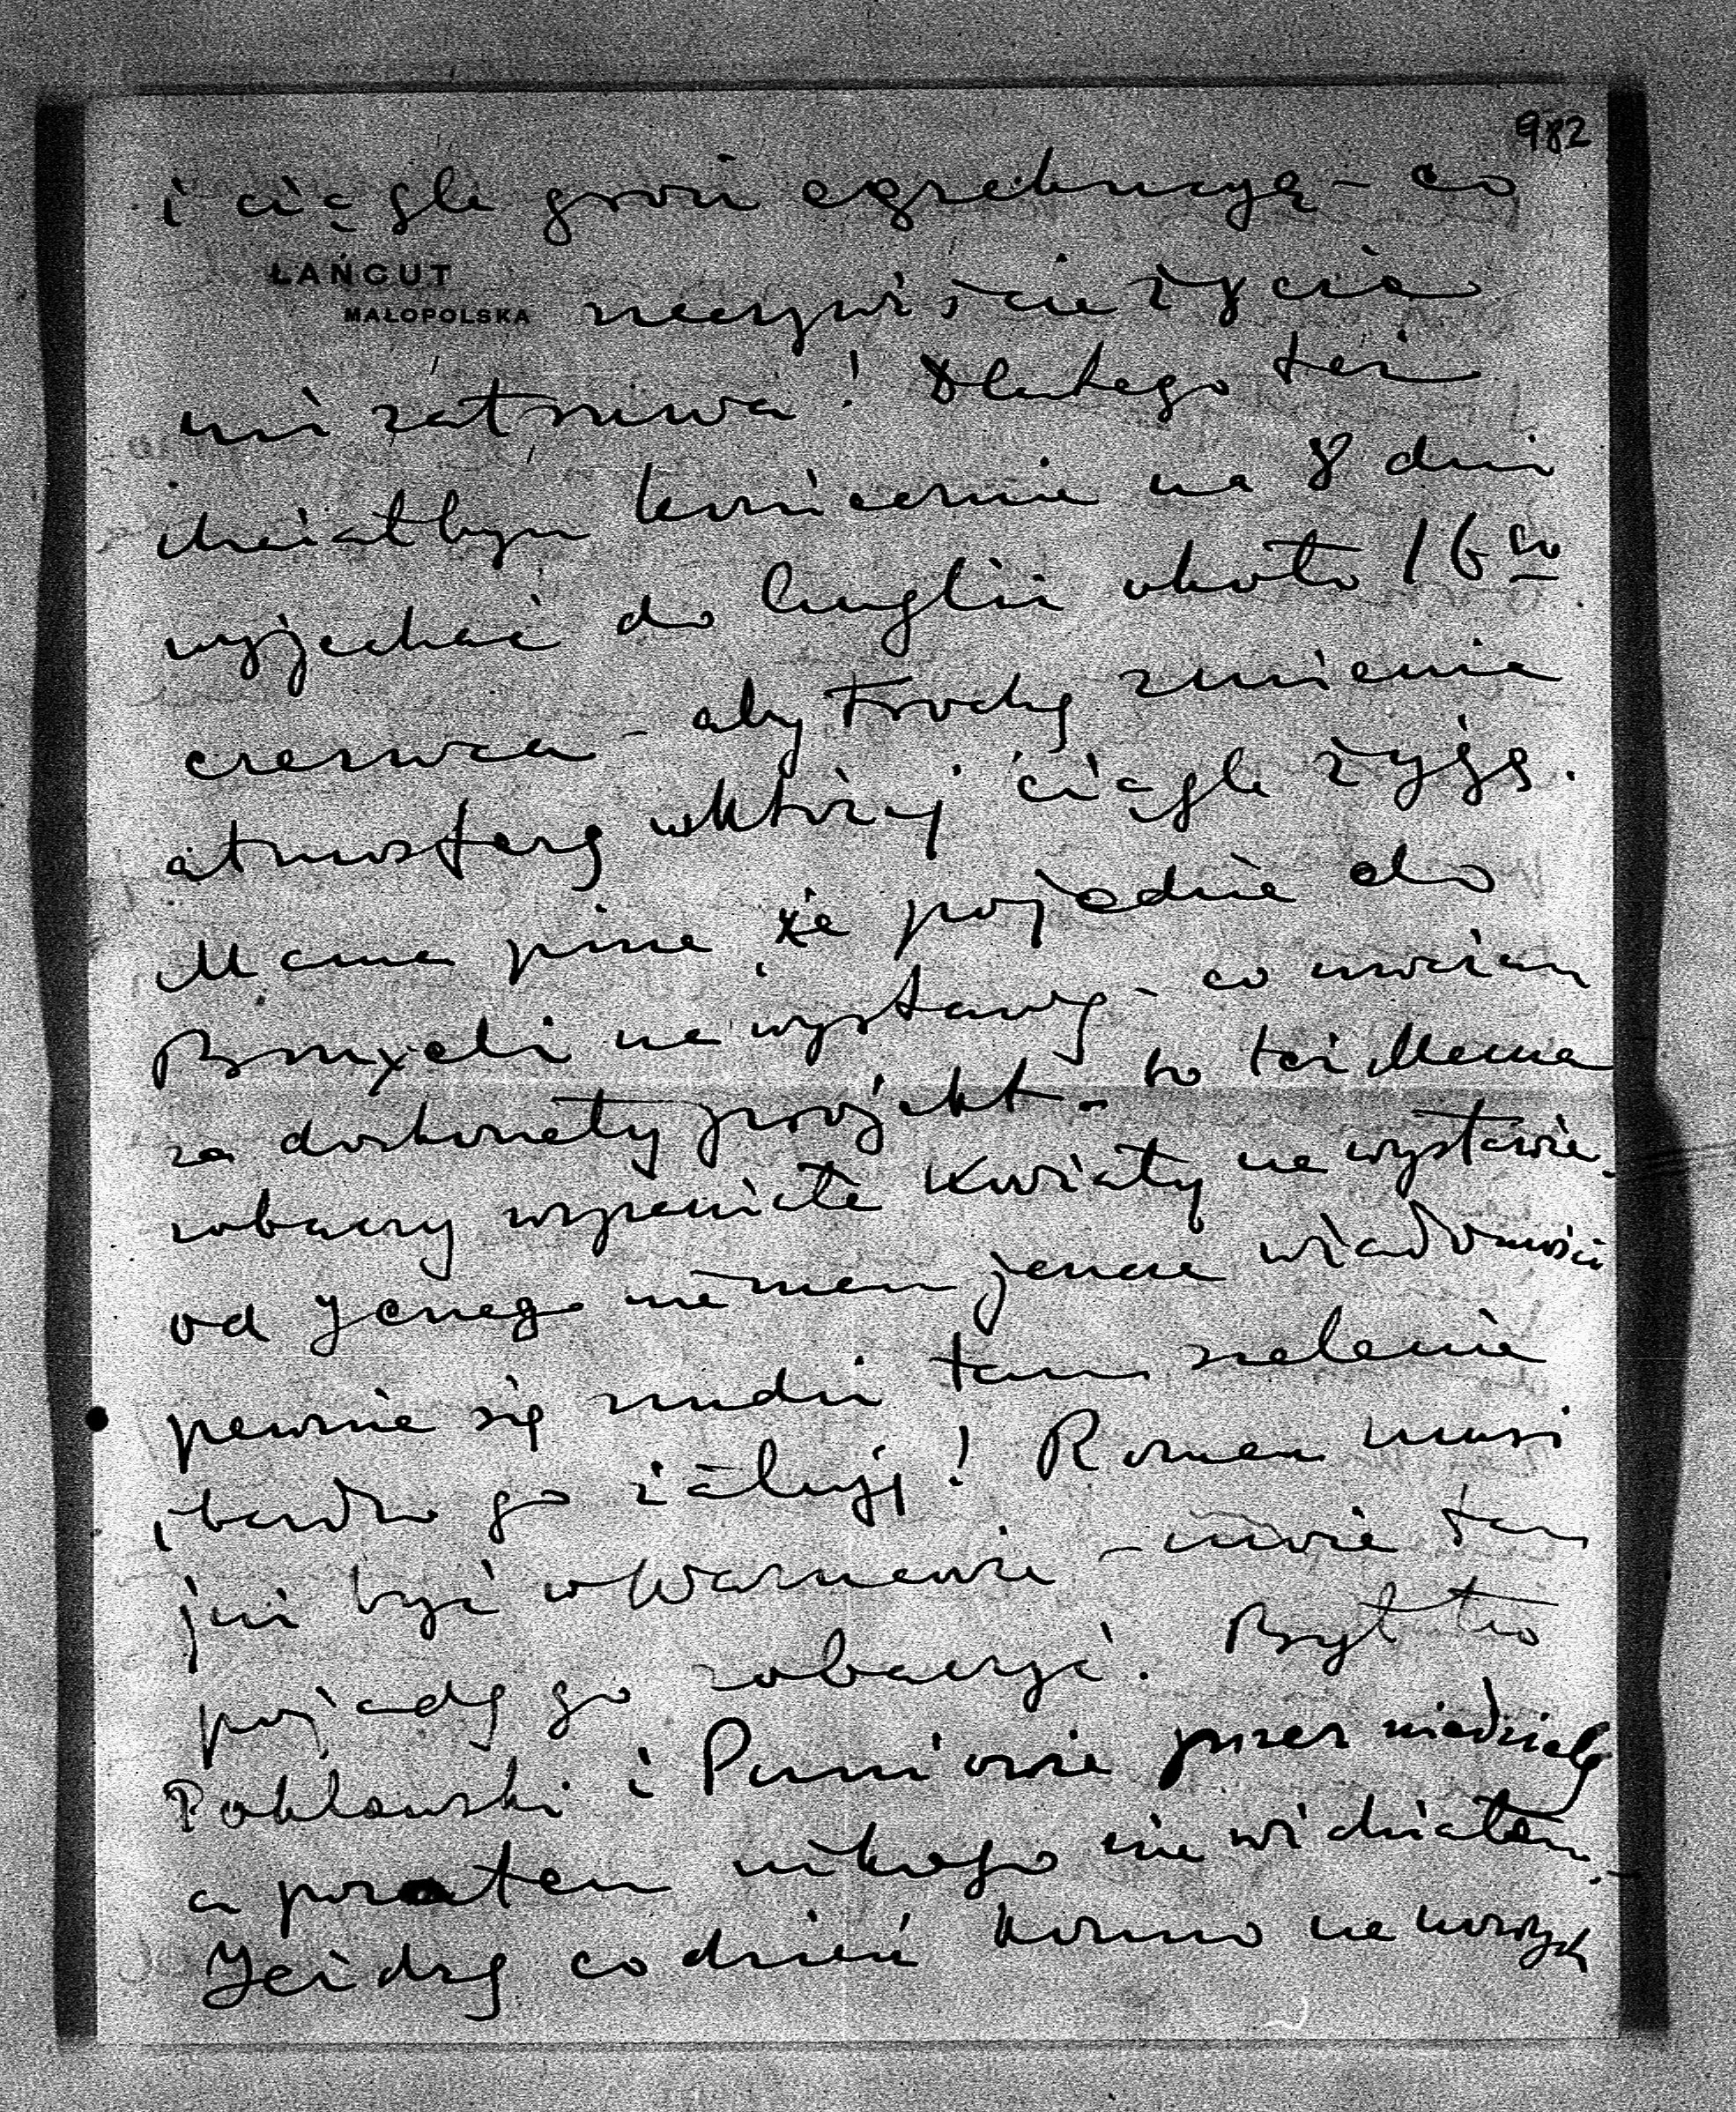 982
i ciągle grozi egzekucyą - co
ŁAŃCUT
MAŁOPOLSKA
rzeczywiście życie
mi zatruwa! Dlatego też
chciałbym koniecznie na 8 dni
wyjechać do Anglii około 16go
czerwca - aby trochę zmienić
atmosferę w której ciągle żyję.
Mama pisze że pojedzie do
Bruxeli na wystawę - co uważam
za doskonały projekt - to też Mama
zobaczy wspaniałe kwiaty na wystawie.
od Jerzego niemam jeszcze wiadomości
pewnie się nudzi tam szalenie
i bardzo go żałuję! Roman musi
już być w Warszawie - może tam
pojadę go zobaczyć. Był tu
Poklewski i Puniowie przez niedzielę
a pozatem nikogo nie widziałem. -
Jeżdżę codzień konno na nowych